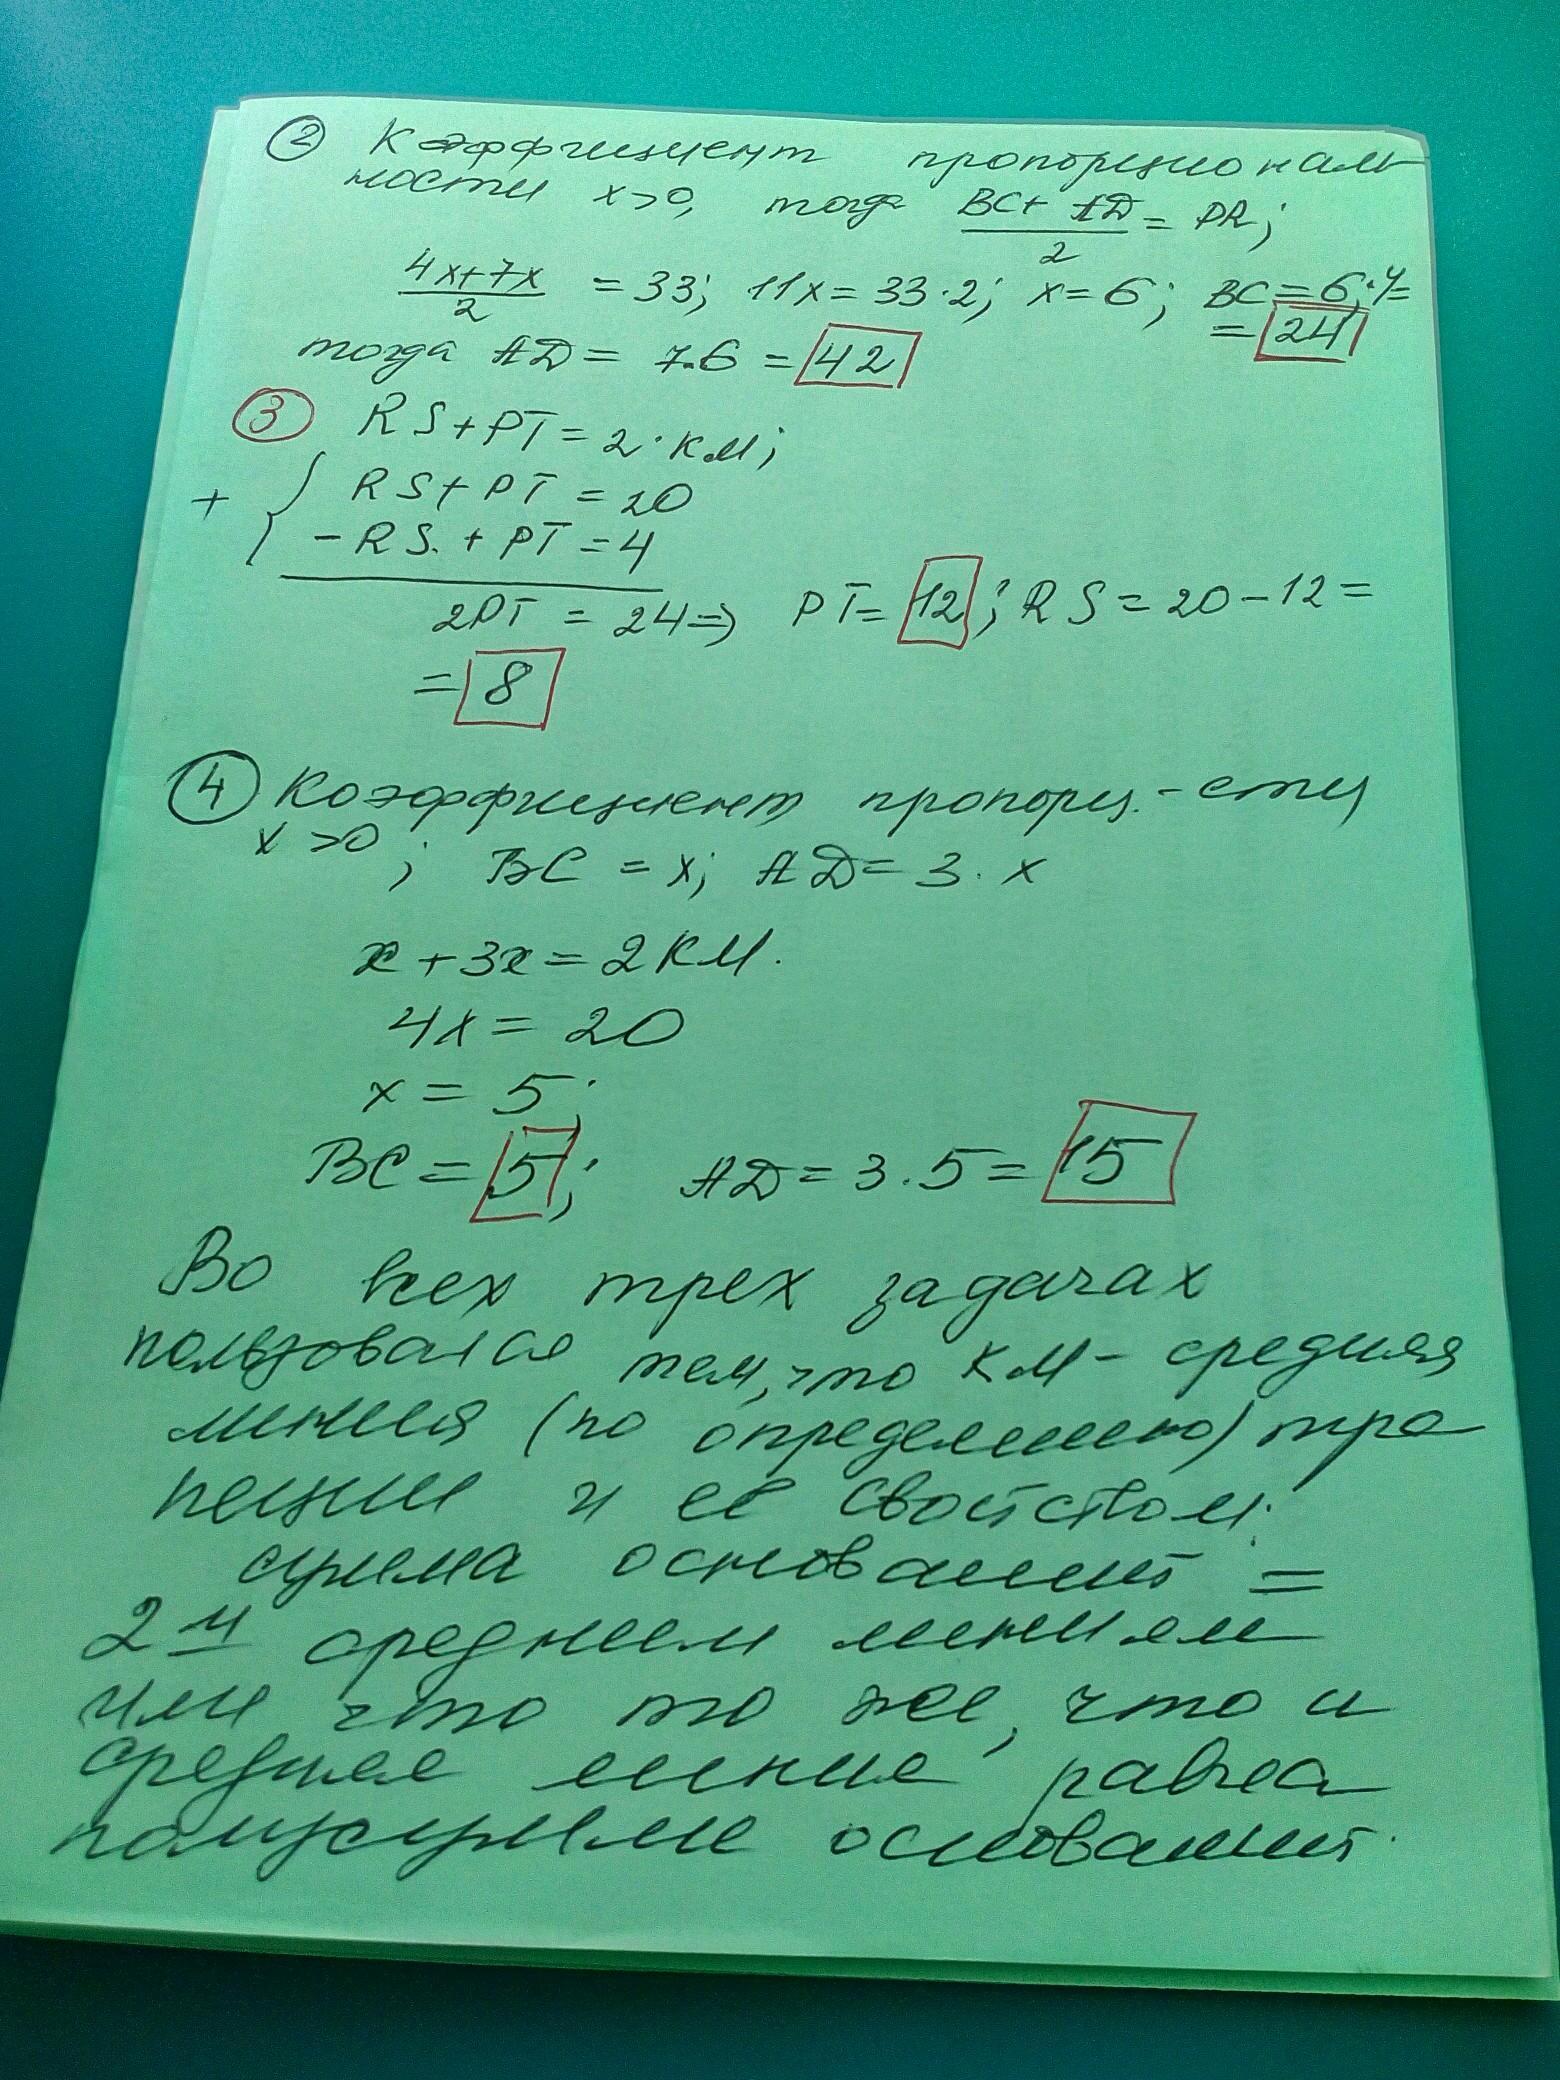 ② Коэффициент пропорциональ
ности x>0, тогда (BC+AD)/2 = PR;
(4x+7x)/2 = 33; 11x=33·2; x=6; BC=6·4=
= 24
тогда AD = 7·6 = 42
③ RS+PT=2·KM;
+ { RS+PT=20
-RS.+PT=4
2PT = 24 ⇒ PT=12; RS=20-12=
= 8
④ Коэффициент пропорц.-сти
x>0; BC = x; AD=3·x
x+3x=2KM.
4x=20
x=5;
BC=5; AD=3·5=15
Во всех трех задачах
пользовался тем, что KM- средняя
линия (по определению) тра
пеции и её свойством:
сумма оснований =
2м средним линиям
или, что то же, что и
средняя линия равна
полусумме оснований.